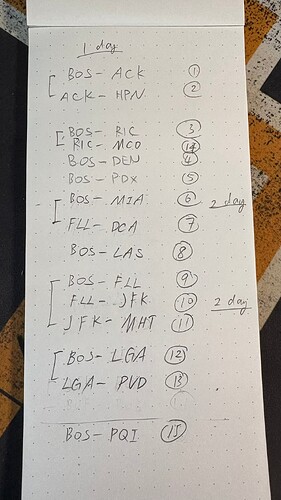 1 day
BOS - ACK 1
ACK - HPN 2
BOS - RIC 3
RIC - MCO 14
BOS - DEN 4
BOS - PDX 5
BOS - MIA 6 2 day
FLL - DCA 7
BOS - LAS 8
BOS - FLL 9
FLL - JFK 10 2 day
JFK - MHT 11
BOS - LGA 12
LGA - PVD 13
BOS - PQI 15